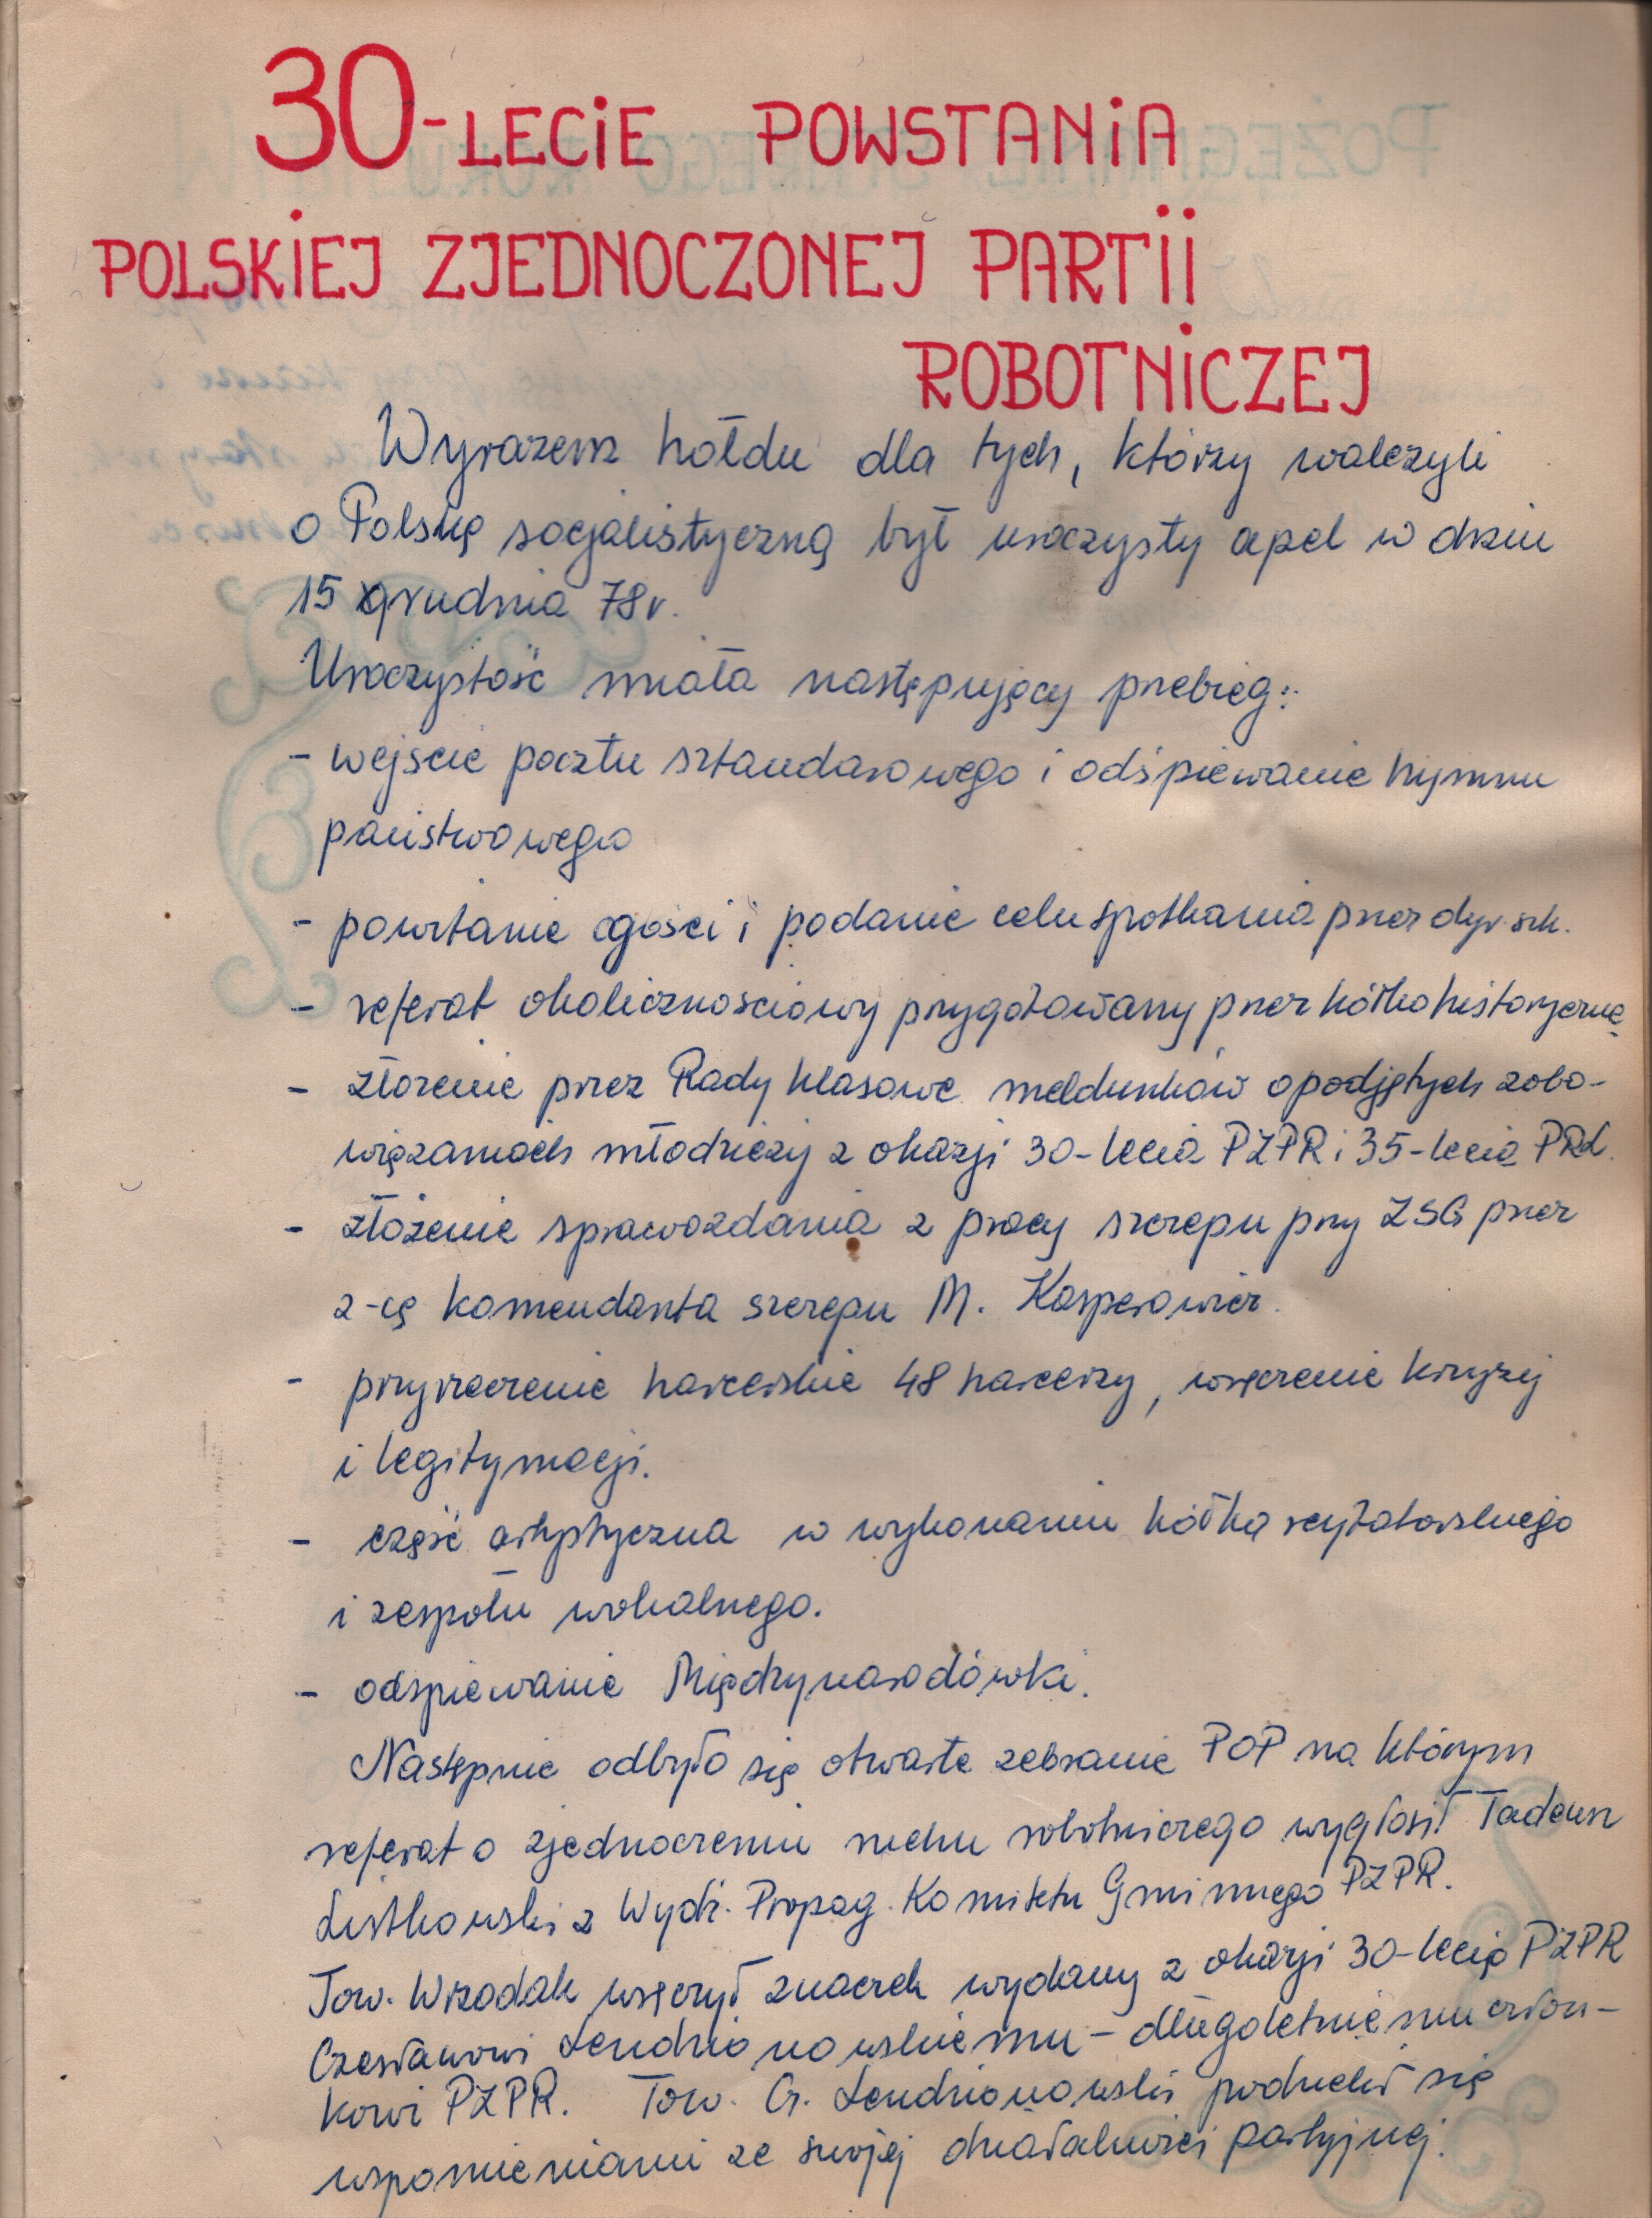 30-LECIE POWSTANIA
POLSKIEJ ZJEDNOCZONEJ PARTII
ROBOTNICZEJ
Wyrazem hołdu dla tych, którzy walczyli
o Polskę socjalistyczną był uroczysty apel w dniu
15 grudnia 78 r.
Uroczystość miała następujący przebieg:
- wejście pocztu sztandarowego i odśpiewanie hymnu
państwowego
- powitanie gości i podanie celu spotkania przez dyr. szk.
- referat okolicznościowy przygotowany przez kółko historyczne
- złożenie przez Rady klasowe meldunków o podjętych zobo-
wiązaniach młodzieży z okazji 30-lecia PZPR i 35-lecia PRL.
- złożenie sprawozdania z pracy szczepu przy ZSG przez
z-cę komendanta szczepu M. Kasperowicz.
- przyrzeczenie harcerskie 48 harcerzy, wręczenie krzyży
i legitymacji.
- część artystyczna w wykonaniu kółka recytatorskiego
i zespołu wokalnego.
- odśpiewanie Międzynarodówki.
Następnie odbyło się otwarte zebranie POP na którym
referat o zjednoczeniu ruchu robotniczego wygłosił Tadeusz
Listkowski z Wydz. Propag. Komitetu Gminnego PZPR.
Tow. Wrzodak wręczył znaczek wydany z okazji 30-lecia PZPR
Czesławowi Lendzionowskiemu - długoletniemu człon-
kowi PZPR. Tow. Cz. Lendzionowski podzielił się
wspomnieniami ze swojej działalności partyjnej.